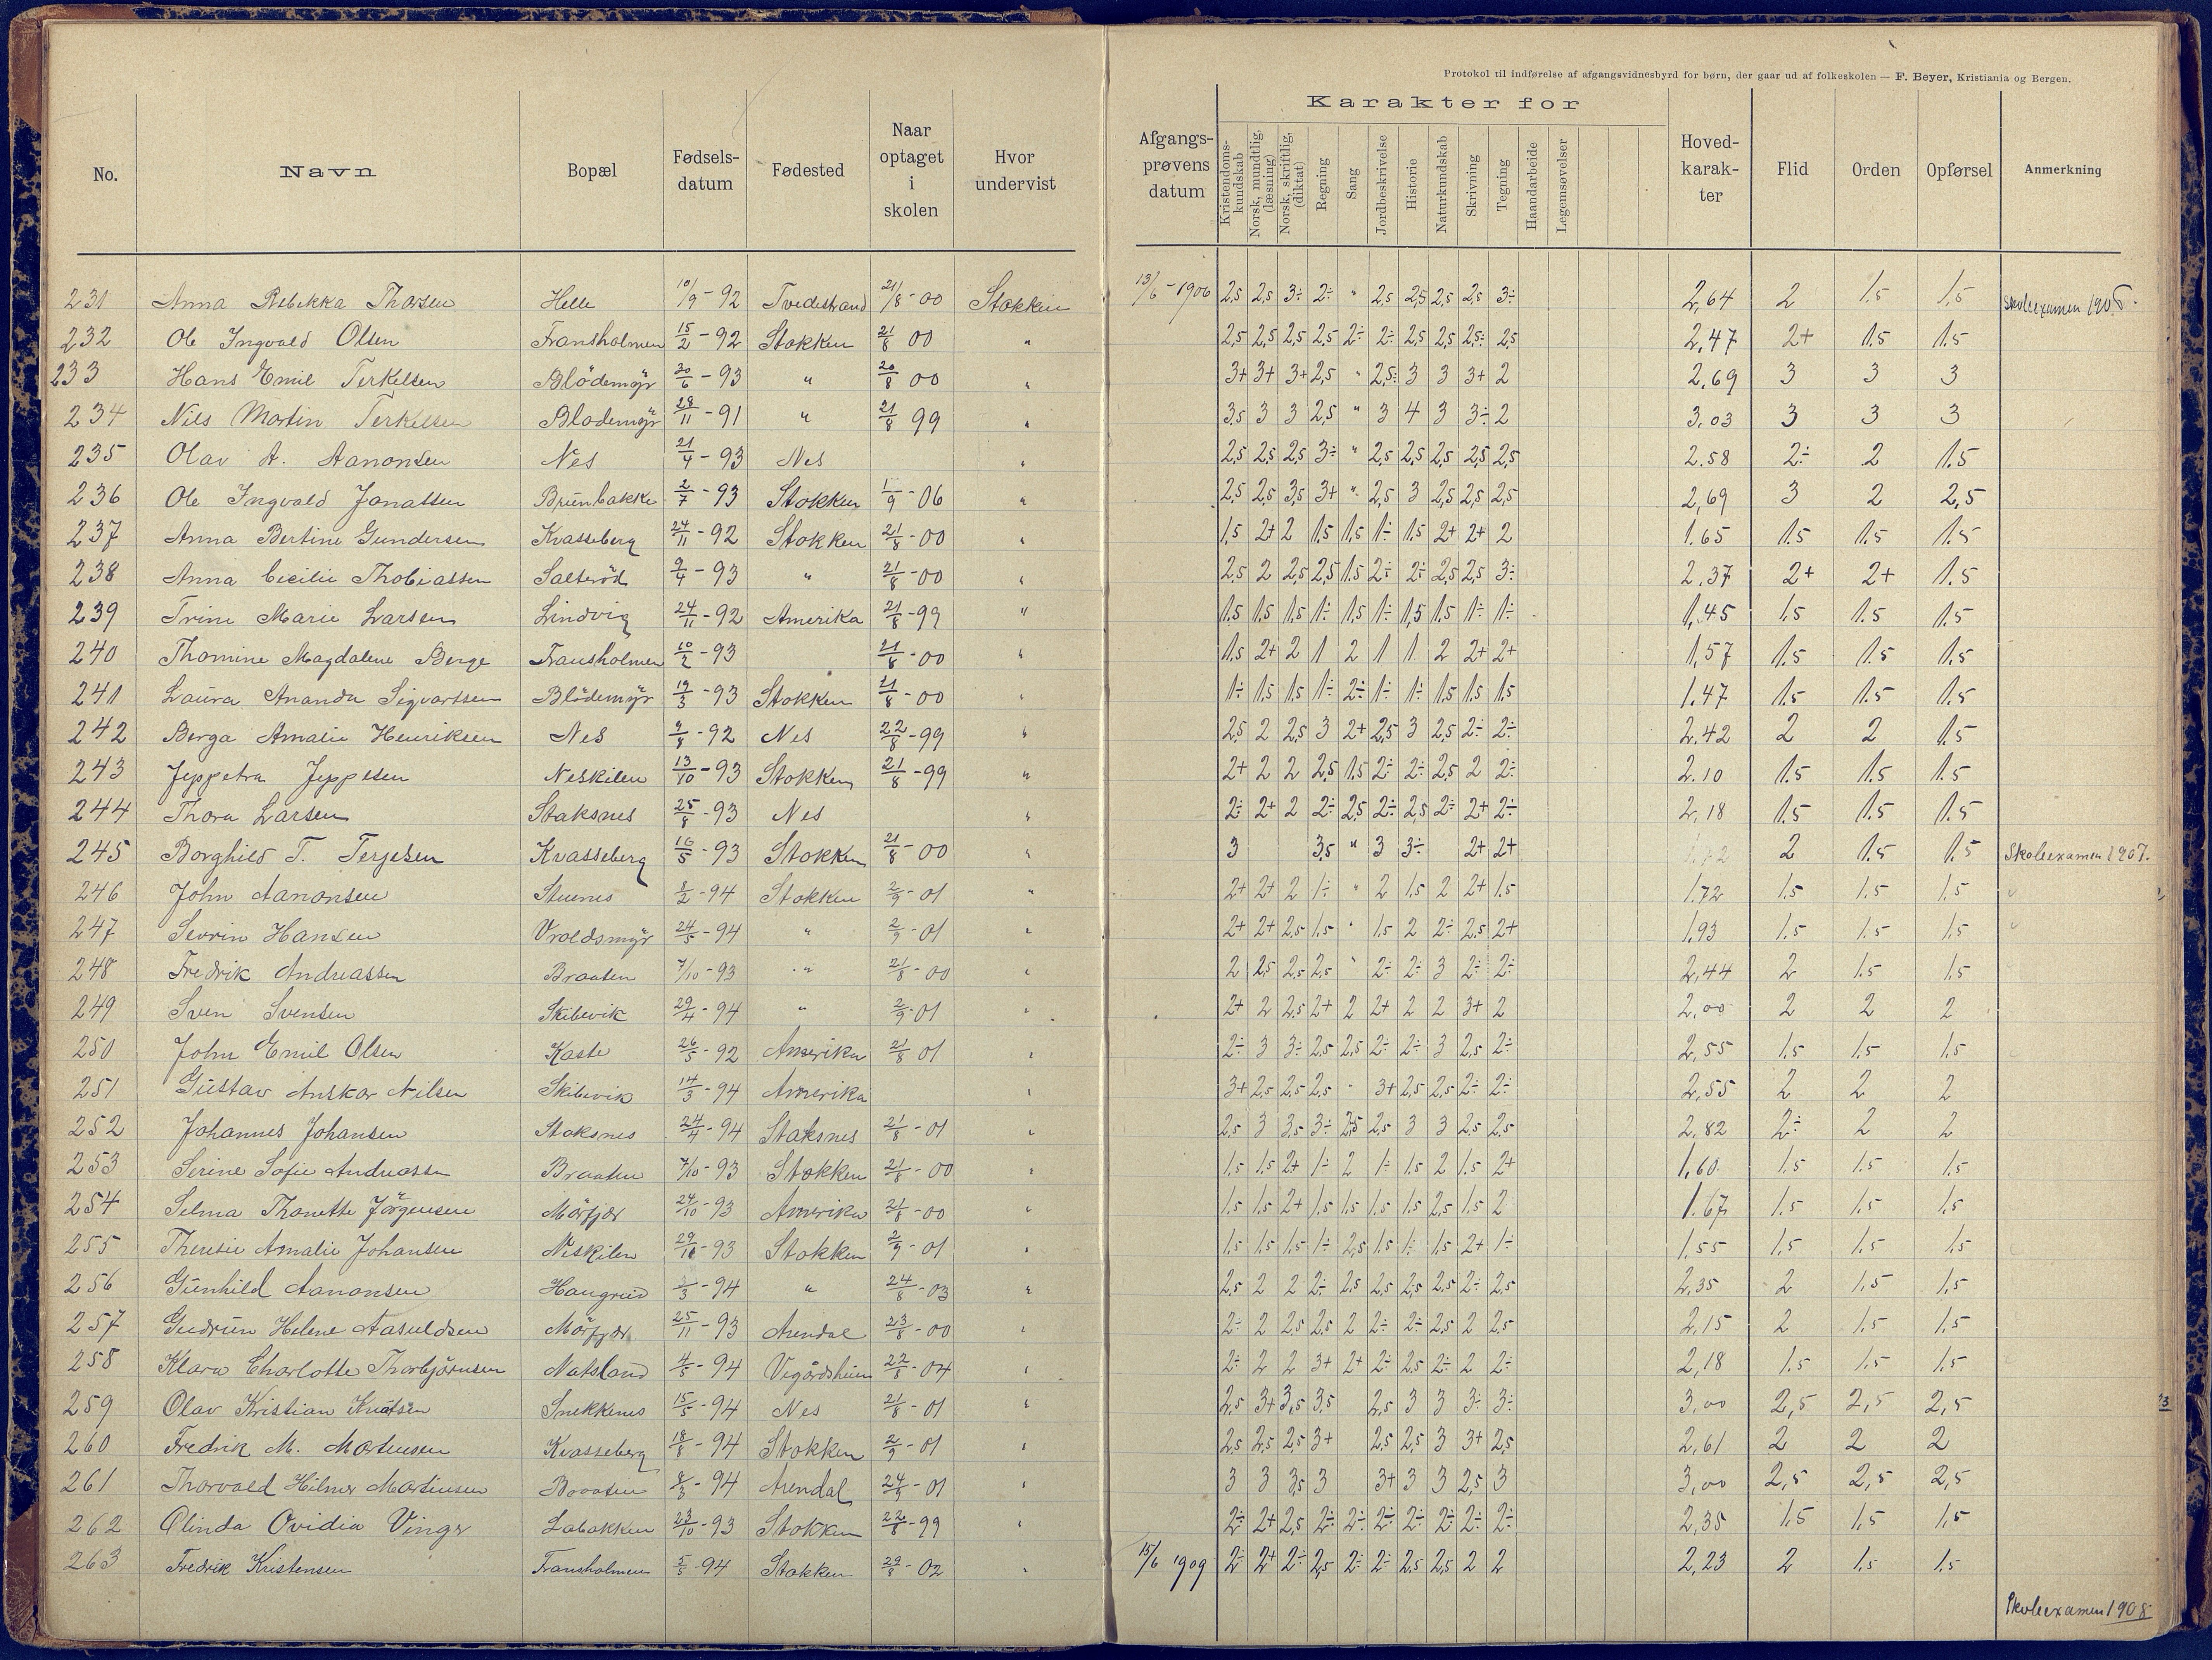 Protokol til indførelse af afgangsvidnesbyrd for børn, der gaar ud af folkeskolen — F. Beyer, Kristiania og Bergen.
Karakter for
No. Navn Bopæl Fødsels-datum Fødested Naar optaget i skolen Hvor undervist Afgangs-prøvens datum Kristendoms-kundskab Norsk, mundtlig, (læsning) Norsk, skriftlig, (diktat) Regning Sang Jordbeskrivelse Historie Naturkundskab Skrivning Tegning Haandarbeide Legemsøvelser Hoved-karak-ter Flid Orden Opførsel Anmerkning
231 Anna Rebekka Thorsen Helle 10/9 - 92 Tvedestrand 21/8 - 00 Stokken 13/6 - 1906 2,5 2,5 3÷ 2÷ " 2,5 2,5 2,5 2,5 3÷ 2,64 2 1.5 1,5 Skoleexamen 1906.
232 Ole Ingvald Olsen Fransholmen 15/2 - 92 Stokken 21/8 00 " 2,5 2,5 2,5 2,5 2÷ 2÷ 2,5 2,5 2,5÷ 2,5 2,47 2+ 1.5 1.5
233 Hans Emil Terkelsen Blödemyr 30/6 - 93 " 20/8 00 " 3+ 3+ 3+ 2,5 " 2,5÷ 3 3 3+ 2 2.69 3 3 3
234 Nils Martin Terkelsen Blodemyr 28/11 - 91 " 21/8 99 " 3,5 3 3 2,5 " 3 4 3 3÷ 2 3,03 3 3 3
235 Olav A. Aanonsen Nes 21/4 - 93 Nes " 2,5 2,5 2,5 3÷ " 2,5 2,5 2,5 2,5 2,5 2.58 2÷ 2 1.5
236 Ole Ingvald Jonassen Brünbakke 2/7 - 93 Stokken 1/9 - 06 " 2,5 2,5 3,5 3+ " 2,5 3 2,5 2,5 2,5 2,69 3 2 2,5
237 Anna Bertine Gundersen Kvasseberg 24/11 - 92 Stokken 21/8 - 00 " 1,5 2+ 2 1.5 1,5 1÷ 1.5 2+ 2+ 2 1.65 1.5 1.5 1.5
238 Anna Cecilie Thobiassen Salteröd 9/4 - 93 " 21/8 - 00 " 2,5 2 2,5 2,5 1.5 2÷ 2÷ 2,5 2,5 3÷ 2.37 2+ 2+ 1.5
239 Trine Marie Larsen Lindvig 24/11 - 92 Amerika 21/8 - 99 " 1.5 1.5 1.5 1÷ 1,5 1÷ 1,5 1.5 1÷ 1÷ 1,45 1,5 1.5 1.5
240 Thomine Magdalene Berge Fransholmen 10/2 - 93 21/8 - 00 " 1.5 2+ 2 1 2 1 1 2 2+ 2+ 1,57 1.5 1.5 1.5
241 Laura Ananda Sigvartsen Blödemyr 19/3 - 93 Stokken 21/8 - 00 " 1÷ 1.5 1.5 1÷ 2÷ 1÷ 1÷ 1.5 1.5 1.5 1.47 1.5 1.5 1.5
242 Berga Amalie Henriksen Nes 2/8 - 92 Nes 22/8 - 99 " 2,5 2 2,5 3 2+ 2,5 3 2,5 2÷ 2÷ 2.42 2 2 1.5
243 Jeppetra Jeppesen Neskilen 13/10 - 93 Stokken 21/8 - 99 " 2+ 2 2 2,5 1.5 2÷ 2÷ 2,5 2 2÷ 2.10 1.5 1.5 1.5
244 Thora Larsen Staksnes 25/8 - 93 Nes " 2÷ 2+ 2 2÷ 2,5 2÷ 2,5 2÷ 2+ 2÷ 2,18 1.5 1.5 1.5
245 Borghild T. Terjesen Kvasseberg 16/5 - 93 Stokken 21/8 - 00 " 3 3,5 " 3 3÷ 2+ 2+ 2 1.5 1.5 Skoleexamen 1907.
246 John Aanonsen Stuenes 8/2 - 94 Stokken 2/9 - 01 " 2+ 2+ 2 1÷ " 2 1,5 2 2+ 1.5 1.72 1.5 1,5 1,5 "
247 Sevrin Hansen Vroldsmyr 24/5 - 94 " 2/9 - 01 " 2+ 2+ 2,5 1.5 " 1,5 2 2÷ 2,5 2+ 1.93 1.5 1.5 1,5 "
248 Fredrik Andreassen Braaten 7/10 - 93 " 21/8 - 00 " 2 2,5 2,5 2,5 " 2÷ 2÷ 3 2÷ 2÷ 2,44 2 1.5 1.5
249 Sven Svensen Skibevik 29/4 - 94 " 2/9 - 01 " 2+ 2 2,5 2+ 2 2+ 2 2 3+ 2 2,00 2 2 2
250 John Emil Olsen Kaste 26/5 - 92 Amerika 21/8 01 " 2÷ 3 3÷ 2,5 2,5 2÷ 2÷ 3 2,5 2÷ 2,55 1.5 1.5 1.5
251 Güstav Anskar Nilsen Skibevik 14/3 - 94 Amerika " 3+ 2,5 2,5 2,5 - 3+ 2,5 2,5 2÷ 2÷ 2,55 2 2 2
252 Johannes Johansen Staksnes 24/4 - 94 Staksnes 21/8 - 01 " 2,5 3 3,5 3÷ 2,5 2,5 3 3 2,5 2,5 2,82 2÷ 2 2
253 Serine Sofie Andreassen Braaten 7/10 - 93 Stokken 21/8 - 00 " 1.5 1.5 2+ 1÷ 2 1÷ 1.5 2 1.5 2+ 1,60 1.5 1.5 1.5
254 Selma Thonette Jörgensen Mörfjær 24/10 - 93 Amerika 21/8 - 00 " 1.5 1.5 2+ 1.5 1.5 1.5 1.5 2,5 1.5 2 1.67 1.5 1.5 1.5
255 Theresie Amalie Johansen Neskilen 93 Stokken 2/9 - 01 " 1.5 1.5 1.5 1÷ 2,5 1.5 1÷ 1.5 2+ 1÷ 1.55 1.5 1.5 1.5
256 Günhild Aanonsen Haugrud 94 " 24/8 - 03 " 2,5 2 2 2÷ 2,5 2,5 2,5 2,5 2÷ 2,5 2,35 2 1.5 1.5
257 Gudrün Helene Aasuldsen Mörfjær 25/11 - 93 Arendal 23/8 - 00 " 2÷ 2 2,5 2,5 2 2÷ 2÷ 2,5 2 2,5 2,15 2 1.5 1.5
258 Klara Charlotte Thorbjörnsen Natsland 4/5 - 94 Vegårdsheien 22/8 - 04 " 2÷ 2 2 3+ 2+ 2÷ 2,5 2÷ 2 2÷ 2,18 1.5 1.5 1.5
259 Olav Kristian Knutsen Snekkenes 15/5 - 94 Nes 21/8 - 01 " 2,5 3+ 3,5 3,5 2,5 3 3 3÷ 3÷ 3,00 2,5 2,5 2,5
260 Fredrik M. Mortensen Kvasseberg 18/8 - 94 Stokken 2/9 - 01 " 2,5 2,5 2,5 3+ 2,5 2,5 3 3+ 2,5 2,61 2 2 2
261 Thorvald Hilmer Martinsen Braaten 8/3 - 94 Arendal 24/9 - 01 " 3 3 3,5 3 3+ 3 3 2,5 3 3,00 2,5 2,5 2,5
262 Olinda Ovidia Vinger Labakken 23/10 - 93 Stokken 22/8 - 99 " 2÷ 2+ 2,5 2÷ 2÷ 2÷ 2÷ 2÷ 2÷ 2÷ 2,35 1,5 1,5 1,5
263 Fredrik Kristensen Fransholmen 5/5 - 94 Stokken 29/8 - 02 " 15/6 1909 2÷ 2+ 2÷ 2,5 2÷ 2÷ 2,5 2,5 2 2 2,23 2 1.5 1.5
Skoleexamen 1908